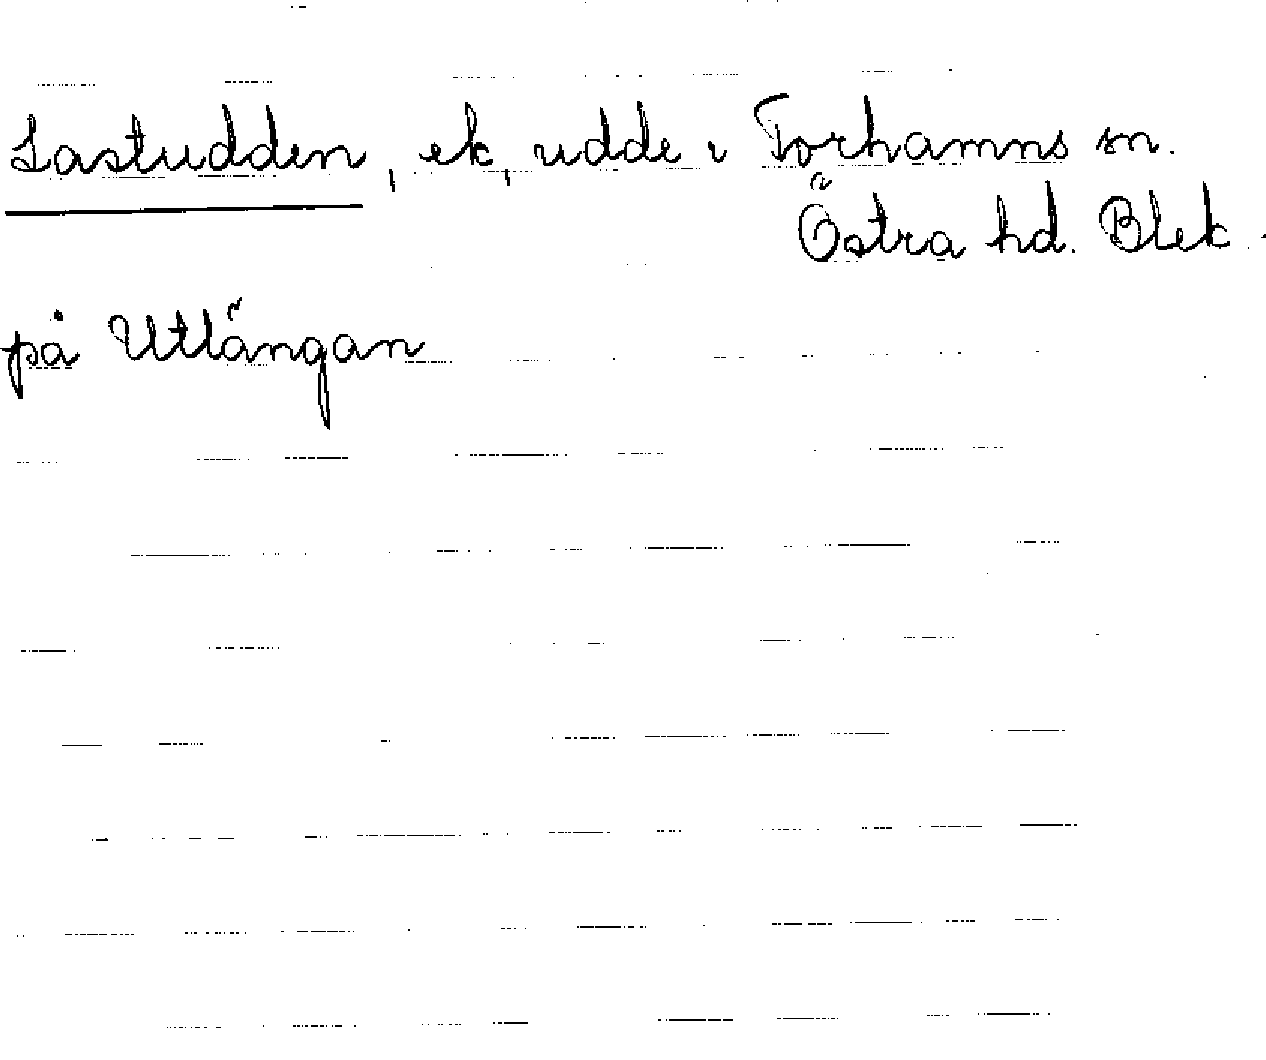 Lastudden, ek, udde i Torhamns sn.
Östra hd. Blek.
på Utlängan